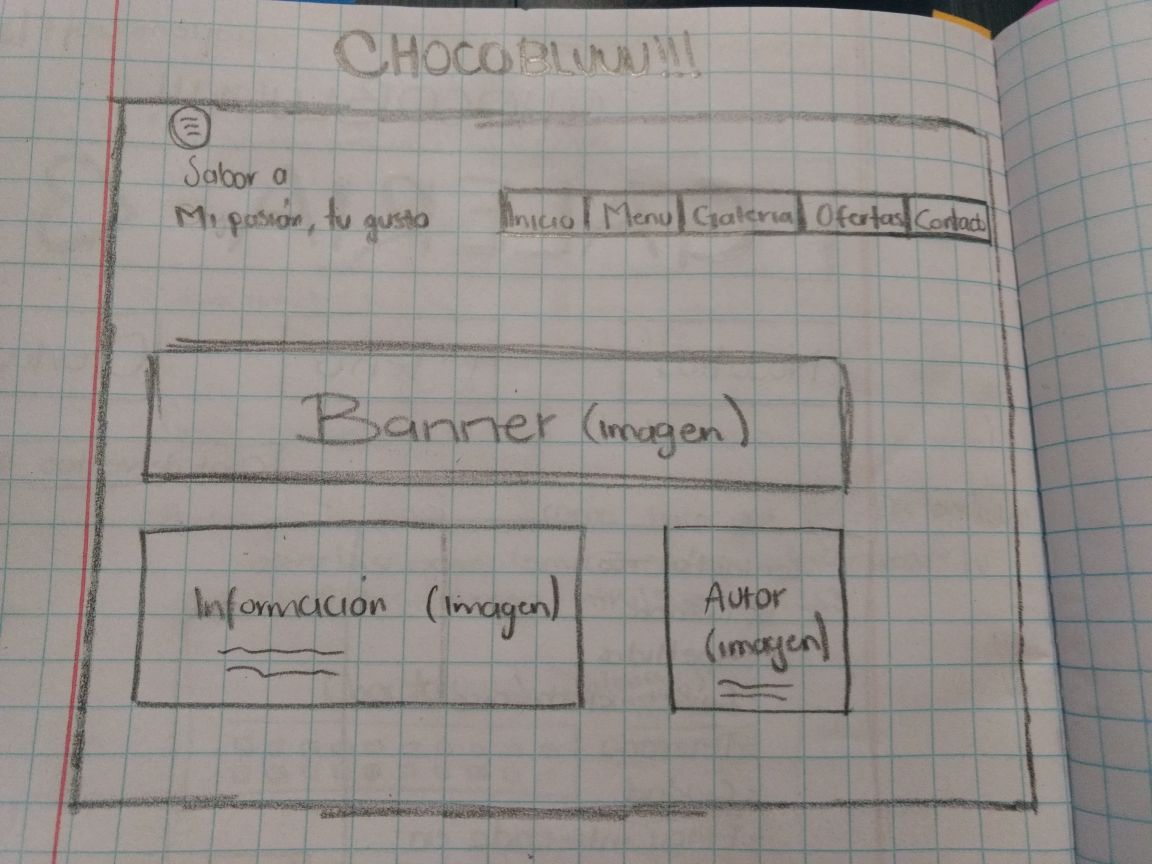 CHOCOBLUUU!!!
Sabor a
Mi pasión, tu gusto
Inicio Menu Galeria Ofertas Contacto
Banner (imagen)
Información (imagen)
Autor
(imagen)